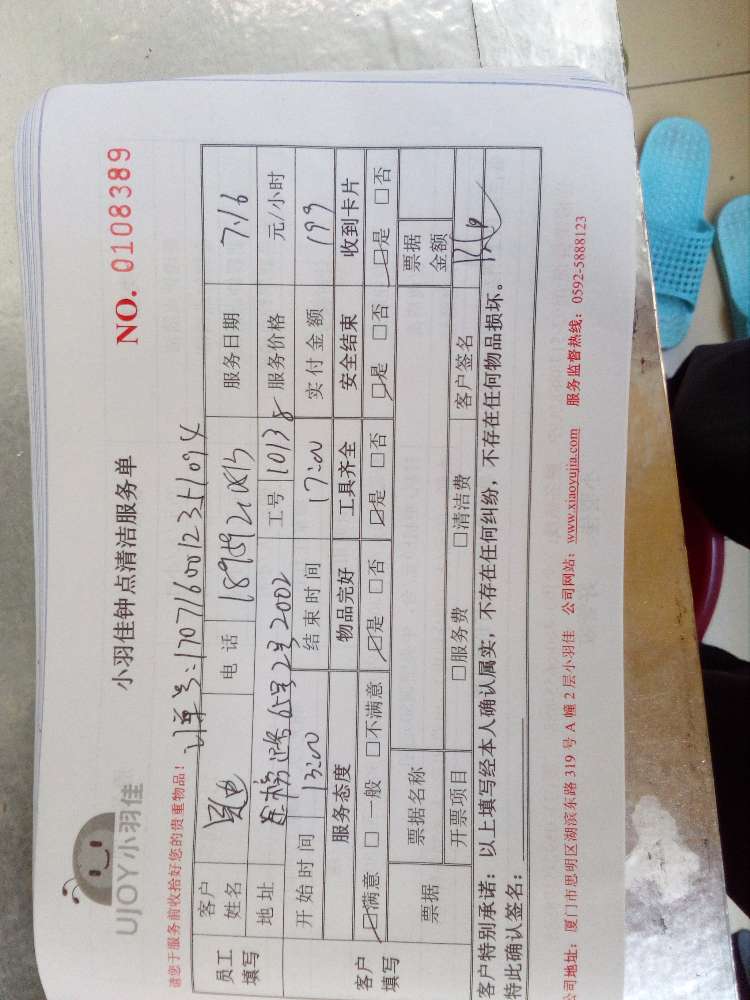 UJOY小羽佳
小羽佳钟点清洁服务单
NO. 0108389
请您于服务前收拾好您的贵重物品!
订单号:
员工填写 客户姓名 电话 服务日期 7.16
地址 65号2号2002 工号 10138 服务价格 元/小时
开始时间 13:00 结束时间 17:00 实付金额 199
客户填写 服务态度 物品完好 工具齐全 安全结束 收到卡片
☑满意 □一般 □不满意 ☑是 □否 ☑是 □否 ☑是 □否 ☑是 □否
票据 票据名称 票据金额
开票项目 □服务费 □清洁费 客户签名
客户特别承诺:以上填写经本人确认属实,不存在任何纠纷,不存在任何物品损坏。
特此确认签名:
公司地址:厦门市思明区湖滨东路 319 号 A 幢 2 层小羽佳 公司网站:www.xiaoyujia.com 服务监督热线:0592-5888123